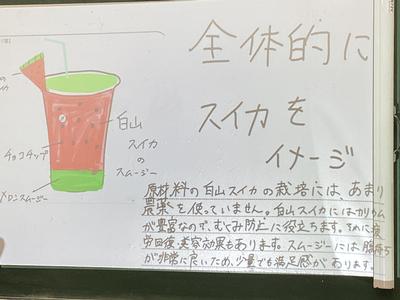 全体的に
スイカを
イメージ
白山
スイカ
の
スムージー
チョコチップ
メロンスムージー
原材料の白山スイカの栽培には、あまり
農薬を使っていません。白山スイカにはカリウム
が豊富なので、むくみ防止に役立ちます。その他に疲
労回復・美容効果もあります。スムージーには腹持ち
が非常に良いため、少量でも満足感があります。